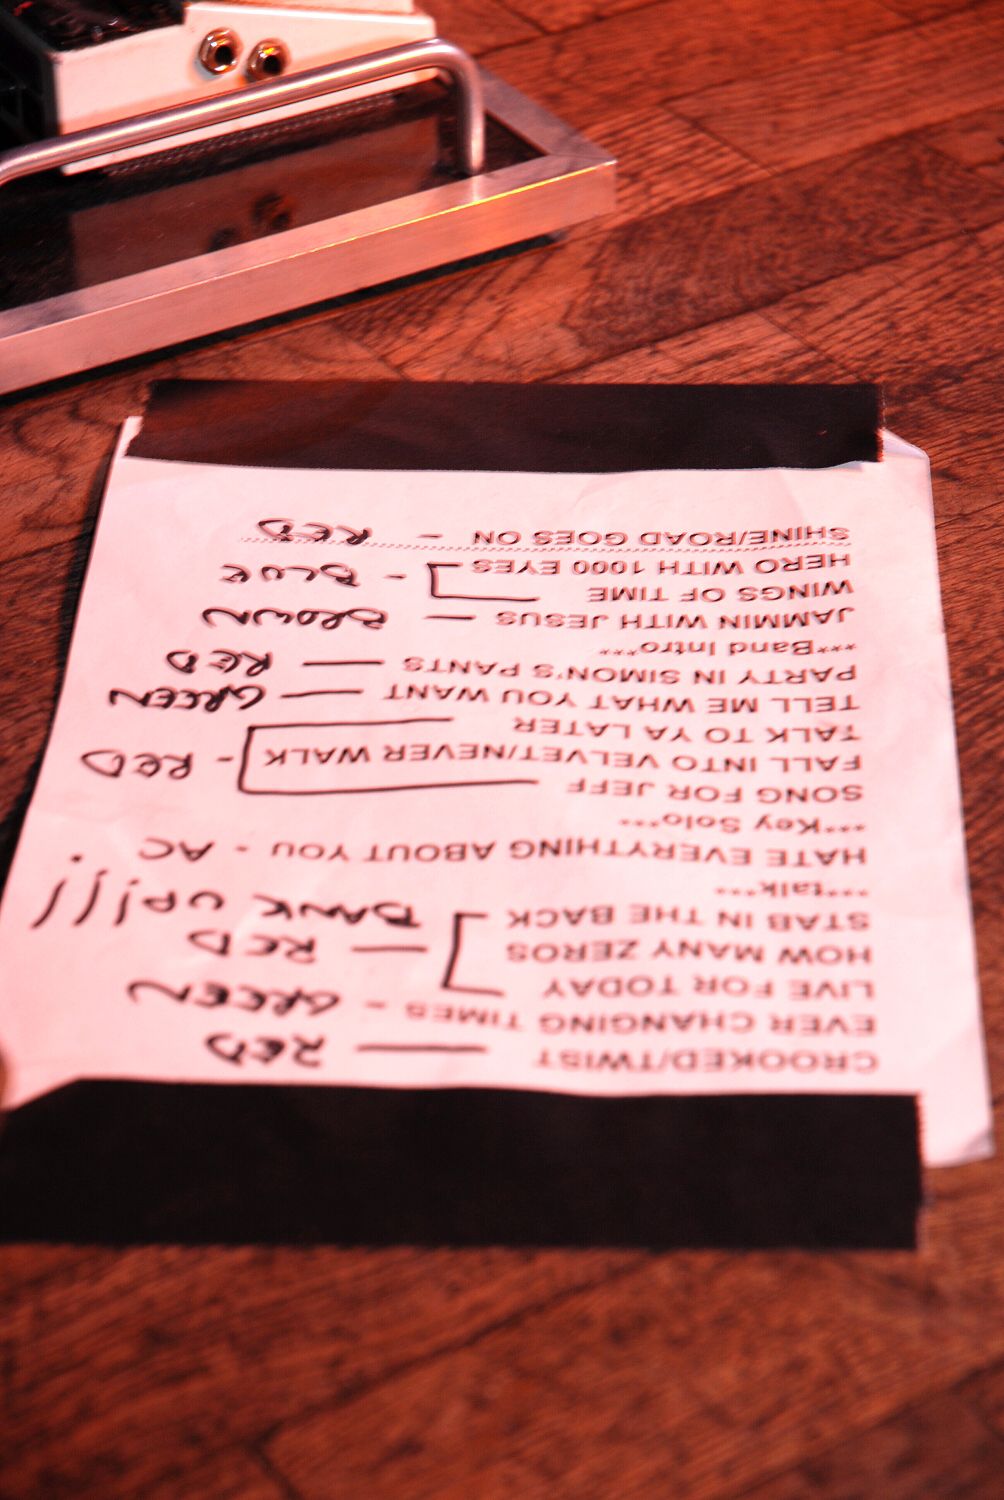 CROOKED/TWIST — RED
EVER CHANGING TIMES - GREEN
LIVE FOR TODAY
HOW MANY ZEROS — RED
STAB IN THE BACK BANK UP!!!
***talk***
HATE EVERYTHING ABOUT YOU - AC
***Key Solo***
SONG FOR JEFF
FALL INTO VELVET/NEVER WALK - RED
TALK TO YA LATER
TELL ME WHAT YOU WANT — GREEN
PARTY IN SIMON'S PANTS — RED
***Band Intro***
JAMMIN WITH JESUS — BROWN
WINGS OF TIME
HERO WITH 1000 EYES - BLUE
SHINE/ROAD GOES ON - RED